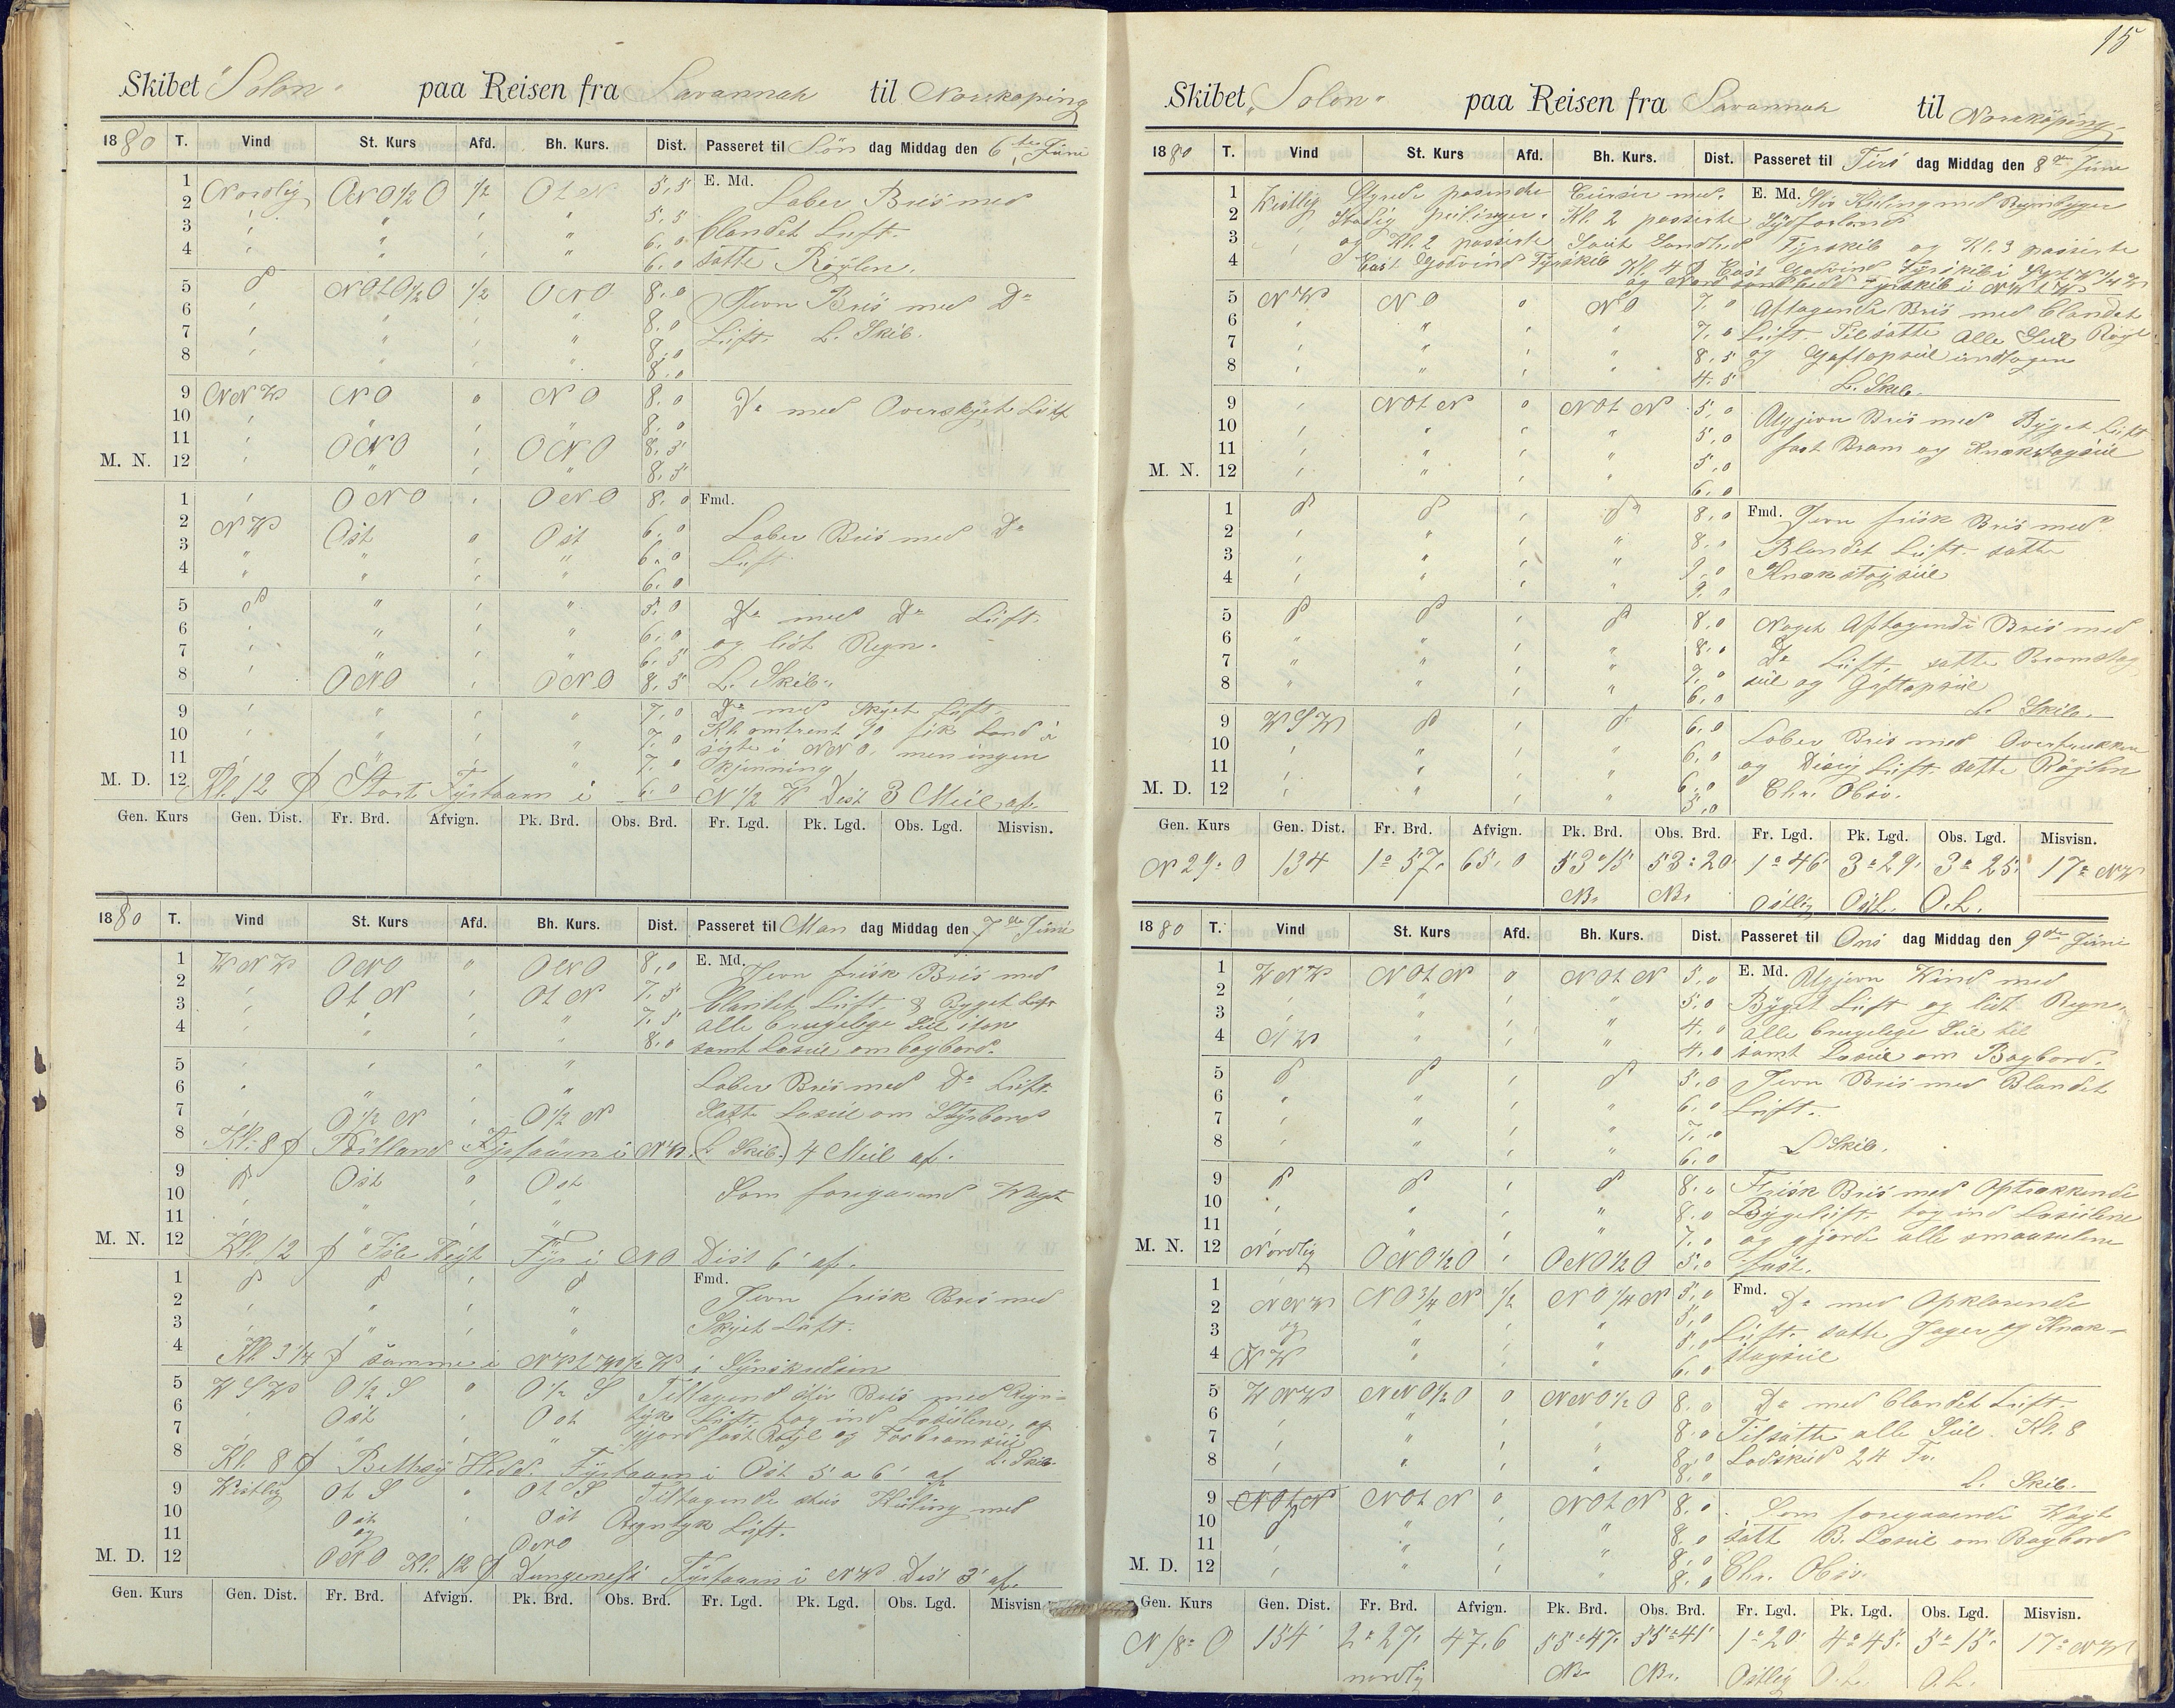 Skibet "Solon" paa Reisen fra Savannah til Norrkøping
1880 T. Vind St. Kurs Afd. Bh. Kurs. Dist. Passeret til Søn dag Middag den 6te Juni
1 Nordlig ONO 1/2 O 1/2 O t N 5,5 E. Md. Laber Bris med
2 5,5 blandet Luft.
3 6,0 satte Røylen.
4 6,0
5 do NO t O 1/2 O 1/2 ONO 8,0 Jevn Bris med Do
6 8,0 Luft. L. Skib.
7 8,0
8 8,0
9 NNW NO " NO 8,0 Do med Overskyet Luft
10 8,0
11 ONO ONO 8,5
M. N. 12 8,5
1 ONO ONO 8,0 Fmd.
2 NW Ost " Ost 6,0 Laber Bris med Do
3 6,0 Luft
4 6,0
5 do 5,0 Do med Do Luft.
6 6,0 og lidt Regn.
7 6,5
8 ONO ONO 8,5 L. Skib.
9 7,0 Do med Skyet Luft.
10 7,0 Kl. omtrent 10 fik Land i
11 7,0 sigte i NNO, men ingen
kjenning
M. D. 12 Kl. 12 Start Fyrtaarn i 6,0 N 1/2 W Dist 3 Mil af.
Gen. Kurs Gen. Dist. Fr. Brd. Afvign. Pk. Brd. Obs. Brd. Fr. Lgd. Pk. Lgd. Obs. Lgd. Misvisn.
1880 T. Vind St. Kurs Afd. Bh. Kurs. Dist. Passeret til Man dag Middag den 7de Juni
1 WNW ONO " ONO 8,0 E. Md. Jevn frisk Bris med
2 O t N O t N 7,5 blandet Luft & Byget Luft
3 7,5 alle brugelige Seil
4 8,0 samt Læseil om bagbord.
5 Laber Bris med Do Luft.
6 Satte Læseil om Styrbord
7 O 1/2 N O 1/2 N
8 Kl. 8 Portland Fyrtaarn i NW. (L. Skib.) 4 Mil af.
9 do Ost " Ost Som foregaaend Wagt
10
11
M. N. 12 Kl. 12 Fyr i NO Dist 6' af.
1 do do do Fmd. Jevn frisk Bris med
2 Skyet Luft.
3
4 Kl. 3 1/4 samme i
5 WSW O 1/2 S " O 1/2 S Tiltagend stiv Bris med Regn-
6 Ost Ost tyk Luft. tog ind Læseilene, og
7 gjord fast Røyl og Forbramseil
8 Kl. 8 Hedd. Fyrtaarn i Ost 5 a 6' af L. Skib.
9 Vestlig O t S " O t S Tiltagende stiv Kuling med
10 Ost Ost Regntyk Luft.
11 og ONO
M. D. 12 ONO Kl. 12 Dungeness Fyrtaarn i NW Dist 3' af.
Gen. Kurs Gen. Dist. Fr. Brd. Afvign. Pk. Brd. Obs. Brd. Fr. Lgd. Pk. Lgd. Obs. Lgd. Misvisn.
15
Skibet "Solon" paa Reisen fra Savannah til Norrköping.
1880 T. Vind St. Kurs Afd. Bh. Kurs. Dist. Passeret til Tirs dag Middag den 8de Juni
1 Vestlig Styrede pasende Curser med. E. Md. Stiv Kuling med Regnbyger
2 Stadig peilinger. Kl. 2 passerte Sydforland
3 og Kl. 2 passerte Fyrskib og Kl. 3 passerte
4 East Godvind Fyrskib Kl. 4 East Godvind Fyrskib i
og Nord Fyrskib i NW t W
5 NW NO " NO 7,0 Aftagende Bris med blandet
6 7,0 Luft. Tilsatte alle Seil Røyl
7 8,5 og Gaftopseil undtagen
8 4,5 L. Skib.
9 NO t N " NO t N 5,0 Ugjevn Bris med Byget Luft
10 5,0 fast Bram og Knækstagseil
11 5,0
M. N. 12 6,0
1 do do do 8,0 Fmd. Jevn frisk Bris med
2 8,0 Blandet Luft. satte
3 9,0 Knækstagseil
4 9,0
5 do do do 8,0 Noget Aftagende Bris med
6 8,0 Do Luft. satte Bramstag
7 7,0 seil og Gaftopseil
8 6,0 L. Skib.
9 WSW do do 6,0 Laber Bris med Overtrukken
10 6,0 og Disig Luft. satte Røylen
11 6,0 Chr. Obsv.
M. D. 12 5,0
Gen. Kurs Gen. Dist. Fr. Brd. Afvign. Pk. Brd. Obs. Brd. Fr. Lgd. Pk. Lgd. Obs. Lgd. Misvisn.
N 29° O 134 1° 57' 65,0 53° 15' 53° 20' 1° 46' 3° 29' 3° 25' 17° NW
NBr NBr Østlig Øst. O. L.
1880 T. Vind St. Kurs Afd. Bh. Kurs. Dist. Passeret til Ons dag Middag den 9de Juni
1 WNW NO t N " NO t N 5,0 E. Md. Ugjevn Wind med
2 5,0 Byget Luft og lidt Regn.
3 4,0 alle brugelige Seil til
4 NW 4,0 samt Læseil om Bagbord.
5 do do do 5,0 Jevn Bris med Blandet
6 6,0 Luft.
7 7,0
8 6,0 L Skib.
9 do do do 8,0 Frisk Bris med Optrækkende
10 8,0 Bygeluft. tog ind Læseilene
11 7,0 og gjorde alle smaaseilene
M. N. 12 Nordlig ONO 1/2 O ONO 1/2 O 5,0 fast.
1 NNW NO 3/4 N 1/2 NO 1/4 N 5,0 Fmd. Do med Opklarende
2 og 5,0 Luft. satte Jager og Knæk-
3 NW 5,0 stagseil
4 6,0
5 WNW NNO 1/2 O " NNO 1/2 O 8,0 Do med blandet Luft.
6 8,0 Tilsatte alle Seil. Kl. 8
7 8,0 Lodskud 24 Fv.
8 8,0 L. Skib.
9 NO t N NO t N " NO t N 8,0 Som foregaaende Wagt
10 do 8,0 satt B. Læseil om Bagbord
11 8,0 Chr. Obsv.
M. D. 12 8,0
Gen. Kurs Gen. Dist. Fr. Brd. Afvign. Pk. Brd. Obs. Brd. Fr. Lgd. Pk. Lgd. Obs. Lgd. Misvisn.
N 18° O 154' 2° 27' 47,6 55° 47' 55° 41' 1° 20' 4° 45' 5° 15' 17° NW
nordlig NBr. NBr. Østlig O. L. O. L.